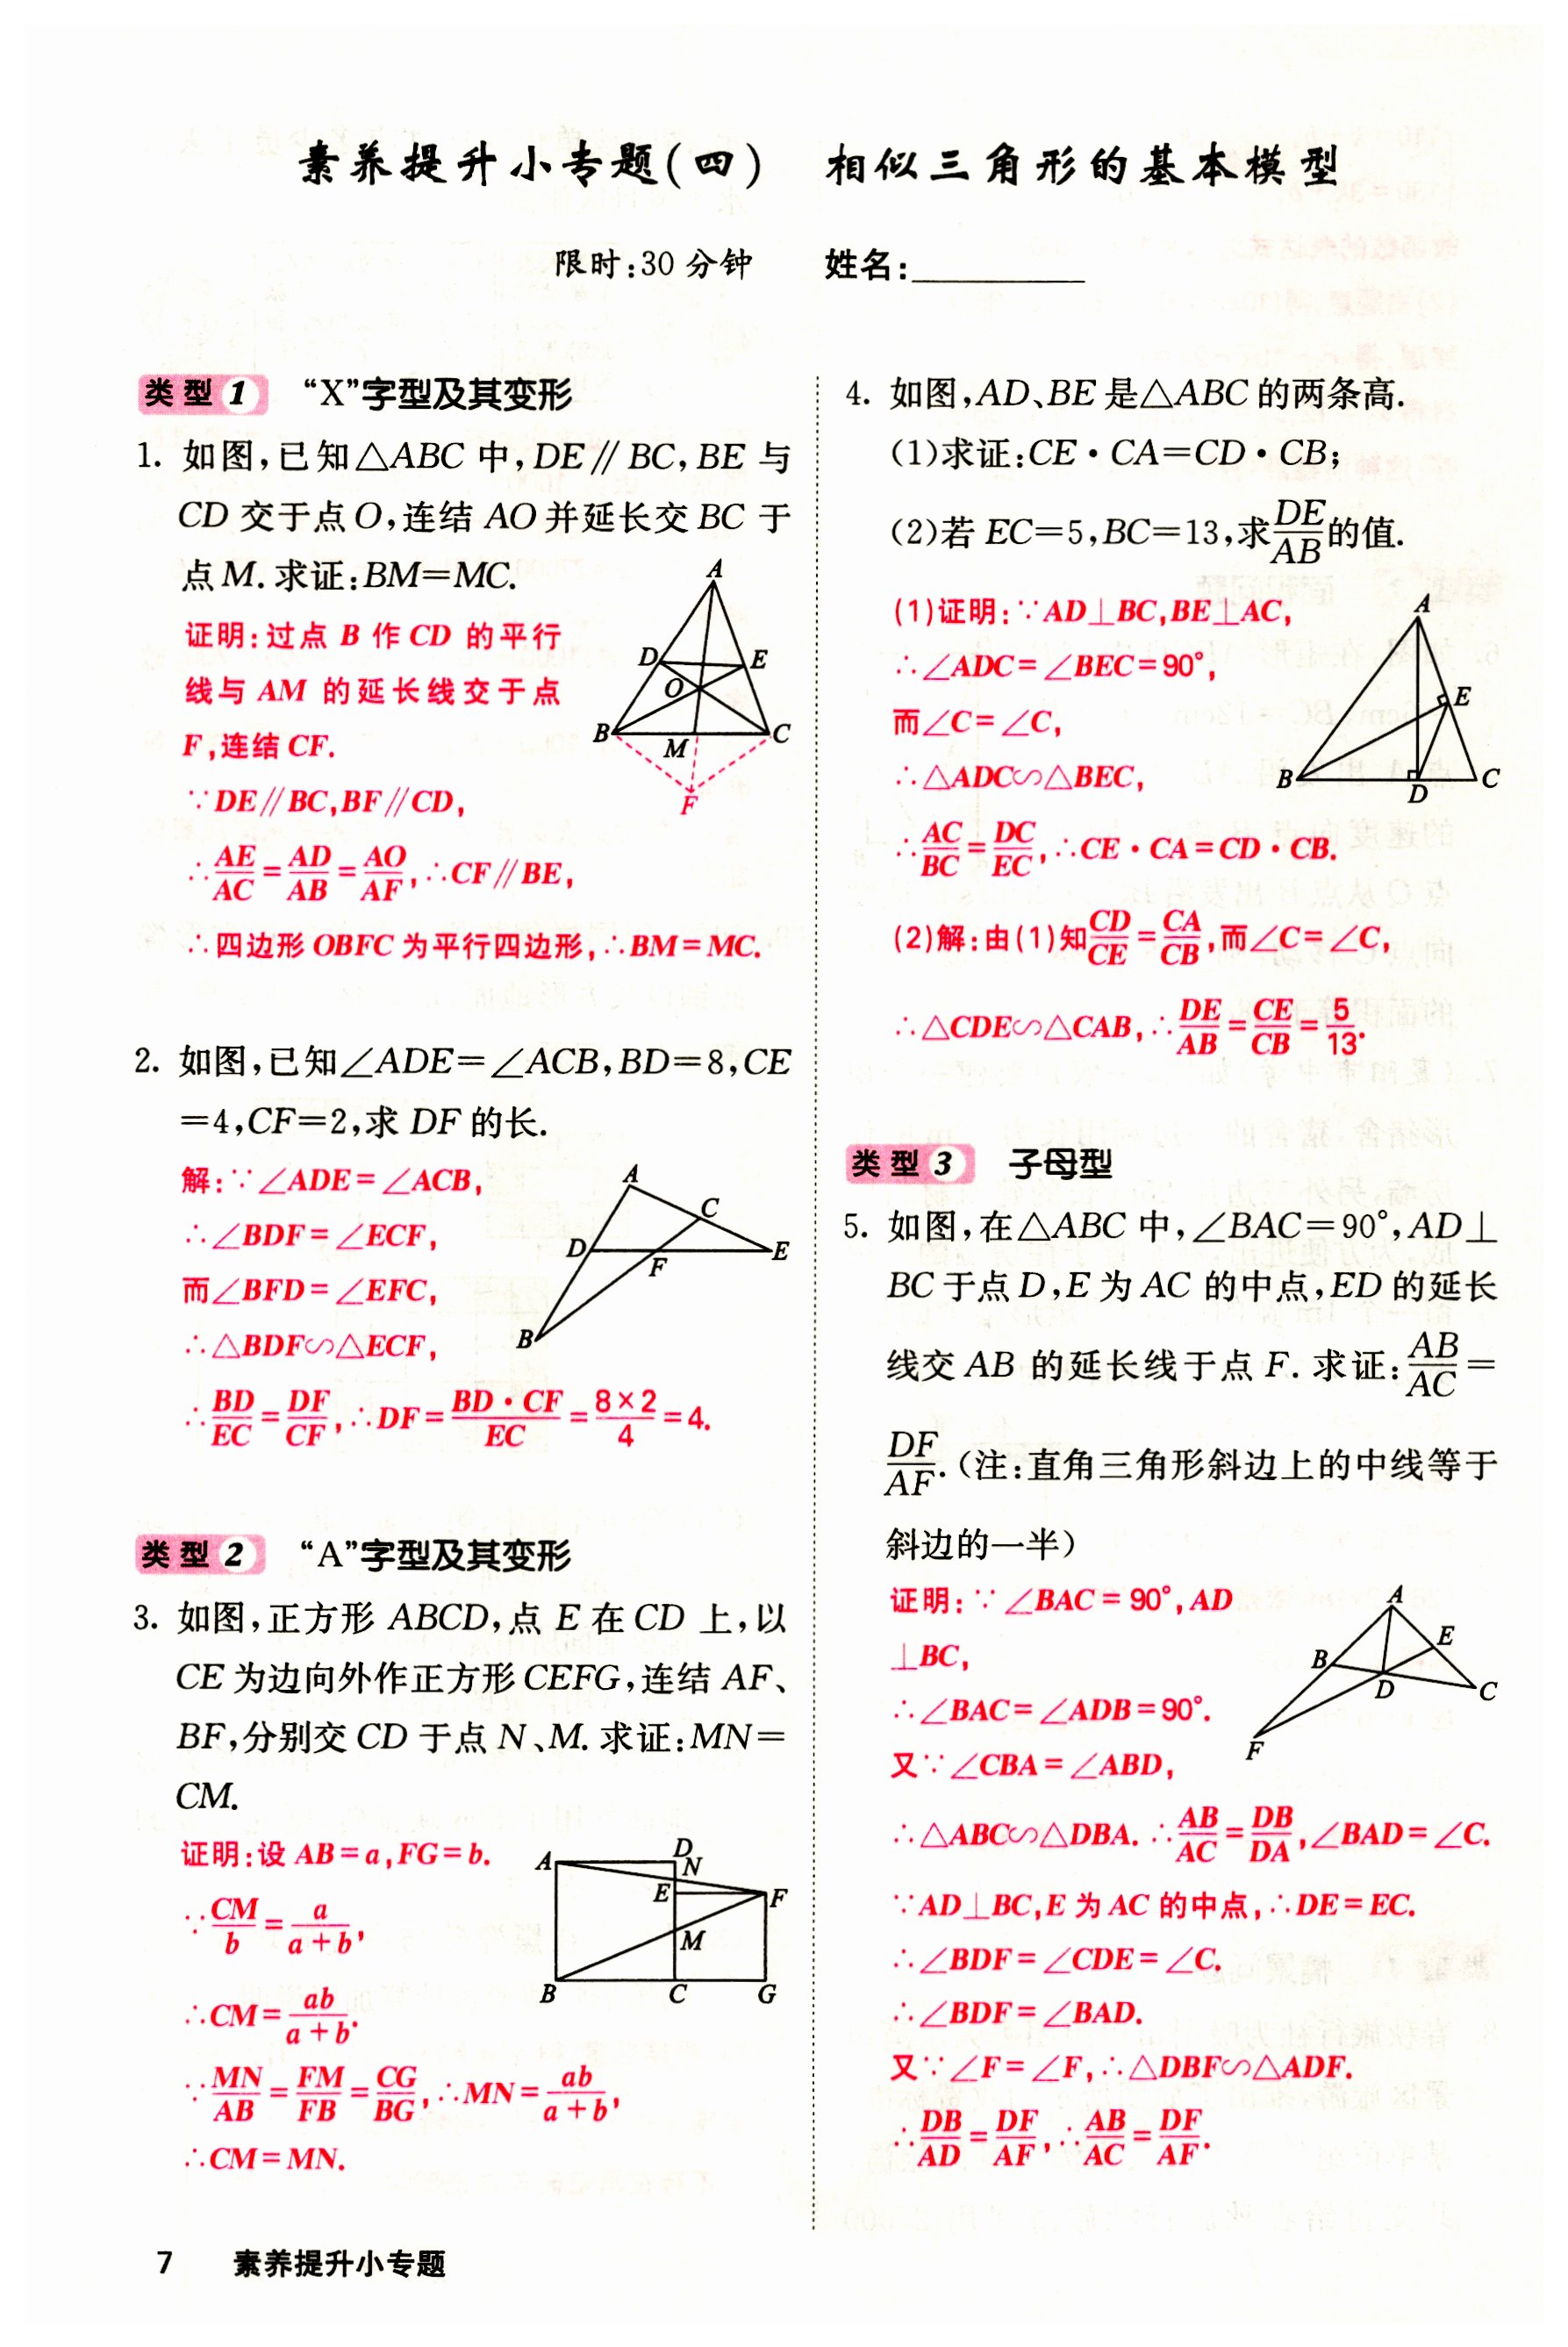 素养提升小专题(四) 相似三角形的基本模型
限时:30分钟 姓名:
类型1 “X”字型及其变形
1. 如图,已知△ABC中,DE∥BC,BE与
CD交于点O,连结AO并延长交BC于
点M.求证:BM=MC.
证明:过点B作CD的平行
线与AM的延长线交于点
F,连结CF.
∵DE∥BC,BF∥CD,
∴AE/AC=AD/AB=AO/AF,∴CF∥BE,
∴四边形OBFC为平行四边形,∴BM=MC.
A
D
E
O
B
M
C
F
2. 如图,已知∠ADE=∠ACB,BD=8,CE
=4,CF=2,求DF的长.
解:∵∠ADE=∠ACB,
∴∠BDF=∠ECF,
而∠BFD=∠EFC,
∴△BDF∽△ECF,
∴BD/EC=DF/CF,∴DF=BD·CF/EC=8×2/4=4.
A
C
D
F
E
B
类型2 “A”字型及其变形
3. 如图,正方形ABCD,点E在CD上,以
CE为边向外作正方形CEFG,连结AF、
BF,分别交CD于点N、M.求证:MN=
CM.
证明:设AB=a,FG=b.
∵CM/b=a/a+b,
∴CM=ab/a+b.
∵MN/AB=FM/FB=CG/BG,∴MN=ab/a+b,
∴CM=MN.
A
D
N
E
F
M
B
C
G
4. 如图,AD、BE是△ABC的两条高.
(1)求证:CE·CA=CD·CB;
(2)若EC=5,BC=13,求DE/AB的值.
(1)证明:∵AD⊥BC,BE⊥AC,
∴∠ADC=∠BEC=90°,
而∠C=∠C,
∴△ADC∽△BEC,
∴AC/BC=DC/EC,∴CE·CA=CD·CB.
(2)解:由(1)知CD/CE=CA/CB,而∠C=∠C,
∴△CDE∽△CAB,∴DE/AB=CE/CB=5/13.
A
E
B
D
C
类型3 子母型
5. 如图,在△ABC中,∠BAC=90°,AD⊥
BC于点D,E为AC的中点,ED的延长
线交AB的延长线于点F.求证:AB/AC=
DF/AF.(注:直角三角形斜边上的中线等于
斜边的一半)
证明:∵∠BAC=90°,AD
⊥BC,
∴∠BAC=∠ADB=90°.
又∵∠CBA=∠ABD,
∴△ABC∽△DBA.∴AB/AC=DB/DA,∠BAD=∠C.
∵AD⊥BC,E为AC的中点,∴DE=EC.
∴∠BDF=∠CDE=∠C.
∴∠BDF=∠BAD.
又∵∠F=∠F,∴△DBF∽△ADF.
∴DB/AD=DF/AF,∴AB/AC=DF/AF.
A
E
B
D
C
F
7 素养提升小专题